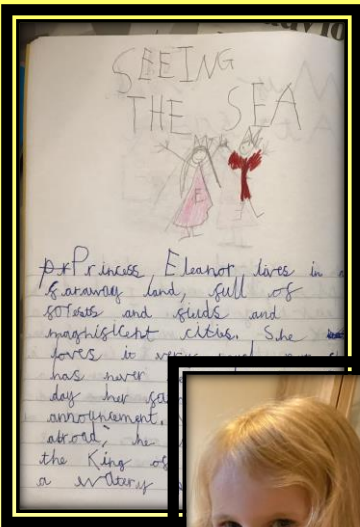 SEEING
THE SEA
E
Princess Eleanor lives in a
faraway land, full of
forests and fields and
magnisicent cities. She
loves it
has never
day her
announcement.
abroad, he
the King of
a watery